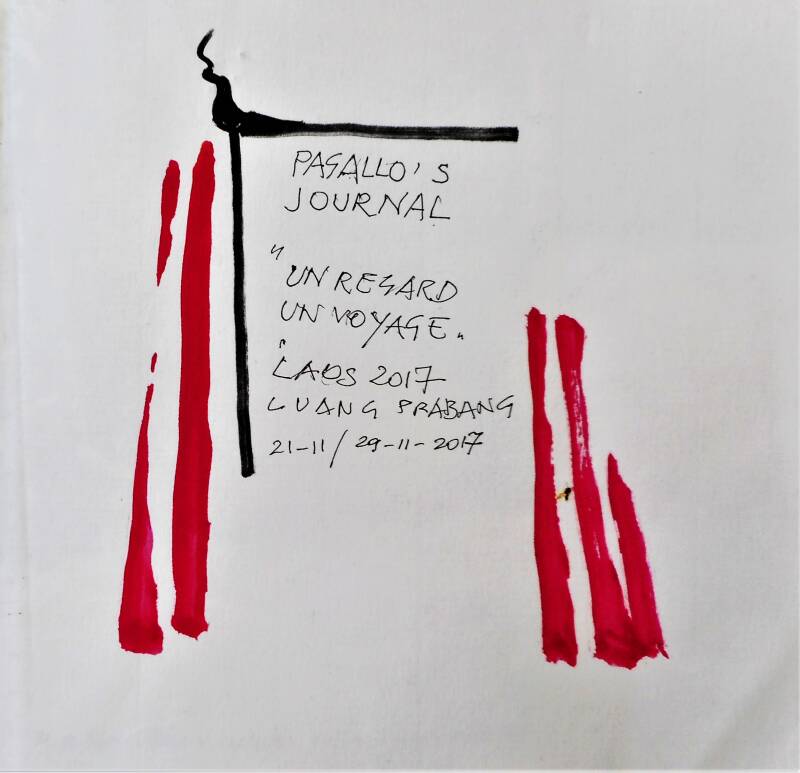 PASALLO'S
JOURNAL
"UN REGARD
UN VOYAGE"
LAOS 2017
LUANG PRABANG
21-11/29-11-2017